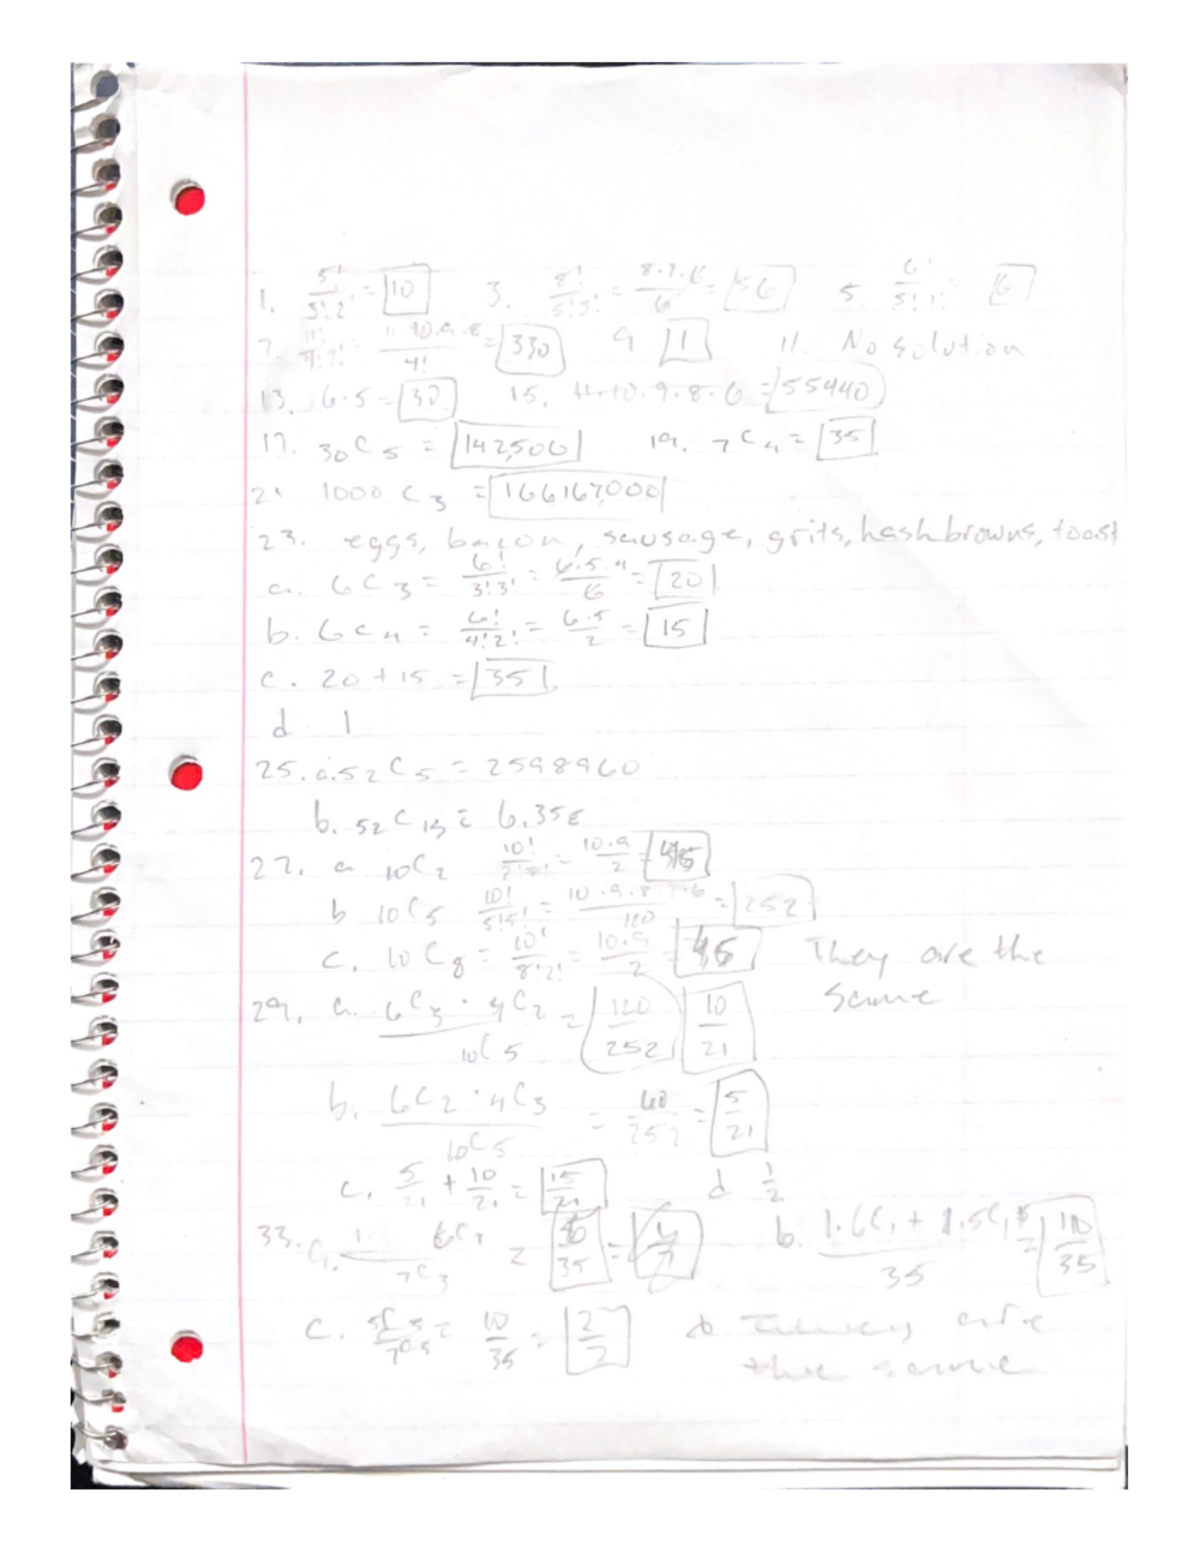 1. 5!/3!2! = 10 3. 8!/5!3! = 8·7·6/6 = 56 5 6!/5!1! = 6
7. = 11·10·9·8/4! = 330 9 1 11. No solution
13. 6·5 = 30 15. 11·10·9·8·6 = 55440
17. 30C5 = 142,506 19. 7C4 = 35
21 1000 C3 = 166,167,000
23. eggs, bacon, sausage, grits, hashbrowns, toast
a. 6C3 = 6!/3!3! = 6·5·4/6 = 20
b. 6C4 = 6!/4!2! = 6·5/2 = 15
c. 20 + 15 = 35
d 1
25. a. 52C5 = 2598960
b. 52C13 = 6.35E
27. a 10C2 10!/2! = 10·9/2 = 45
b 10C5 10!/5!5! = 10·9·8·7·6/120 = 252
c. 10C8 = 10!/8!2! = 10·9/2 = 45 They are the
same
29. a. 6C3 · 4C2/10C5 = 120/252 10/21
b. 6C2 · 4C3/10C5 = 60/252 = 5/21
c. 5/21 + 10/21 = 15/21 d 1/2
33. a. /7C3 = /35 = b. 1·6C1 + 1·5C1/35 = 10/35
c. = 10/35 = 2/7 d They are
the same